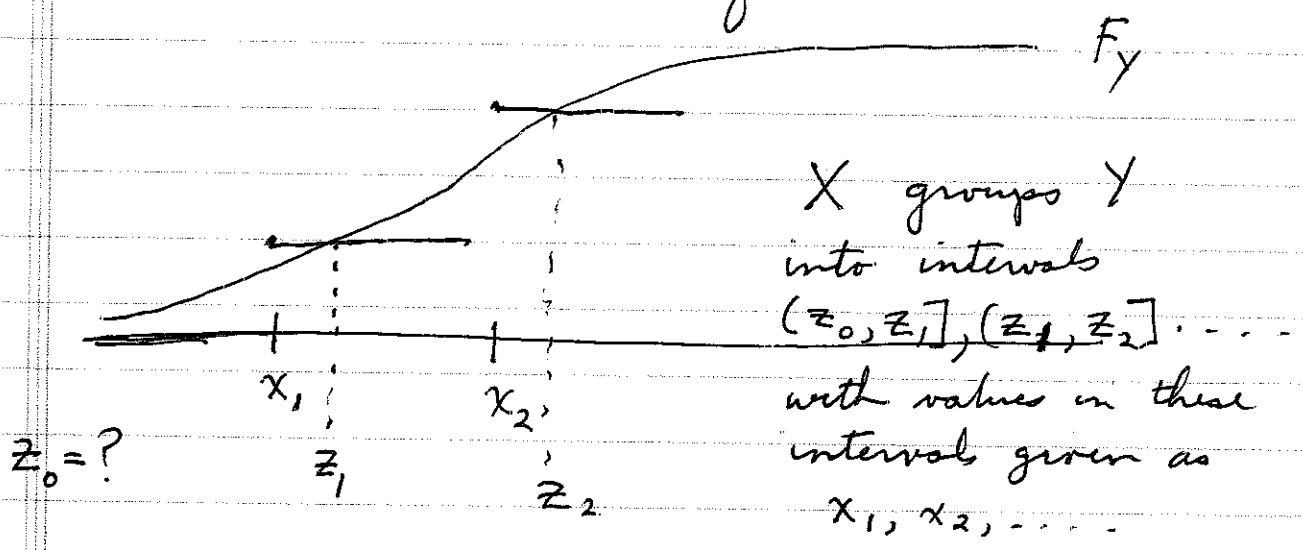 F_Y
X groups Y
into intervals
(z_0, z_1], (z_1, z_2] . . . .
with values in these
intervals given as
x_1, x_2, . . . .
x_1 x_2
z_0 = ? z_1 z_2